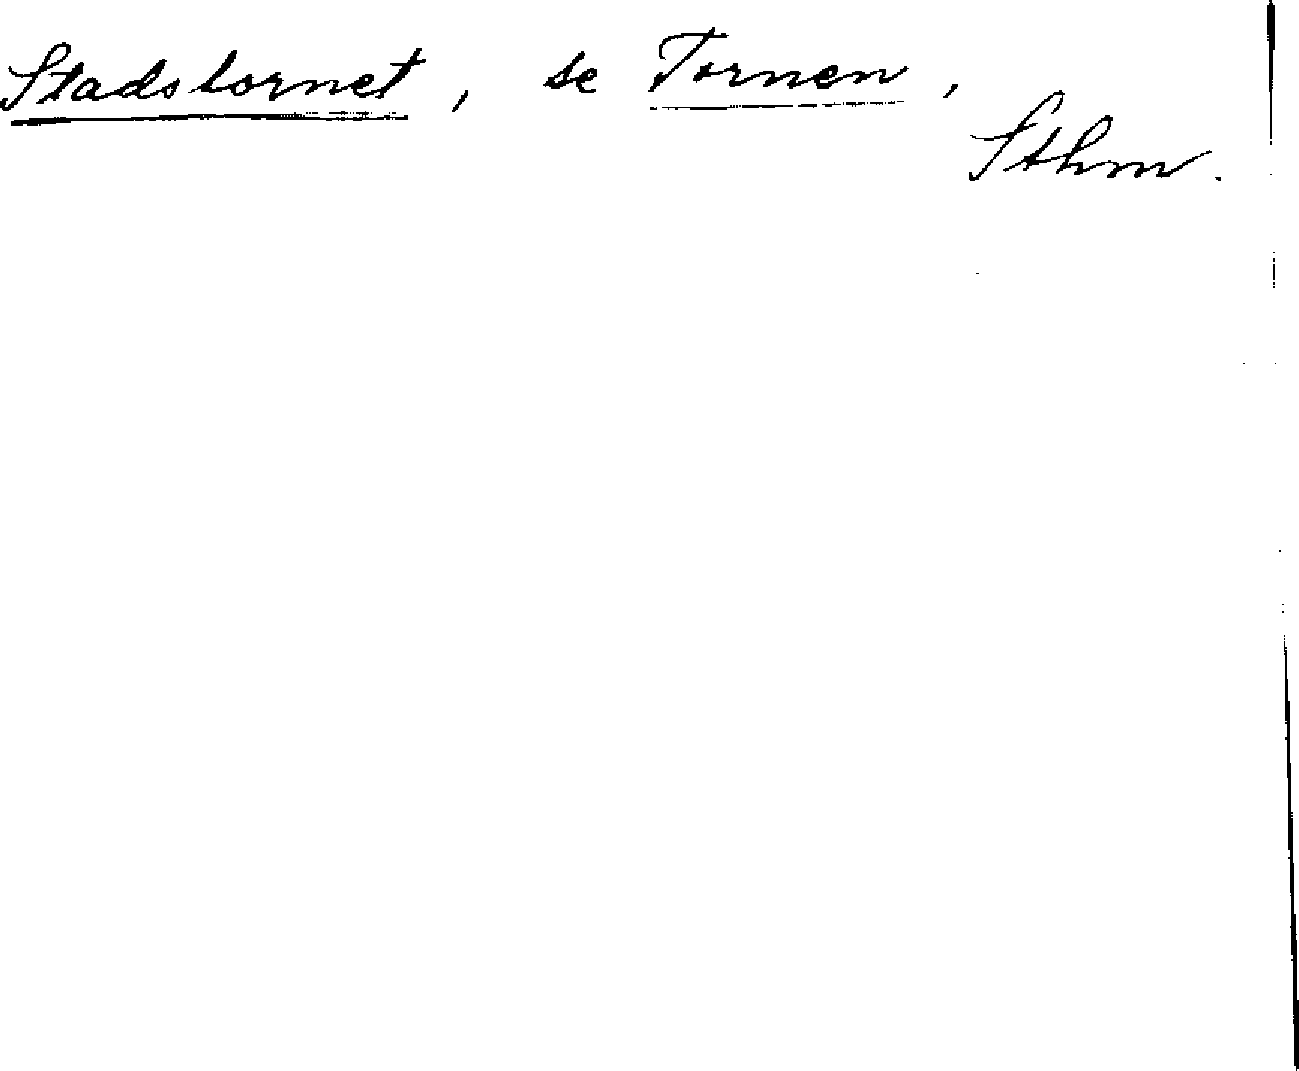 Stadstornet, se Tornen,
Sthm.